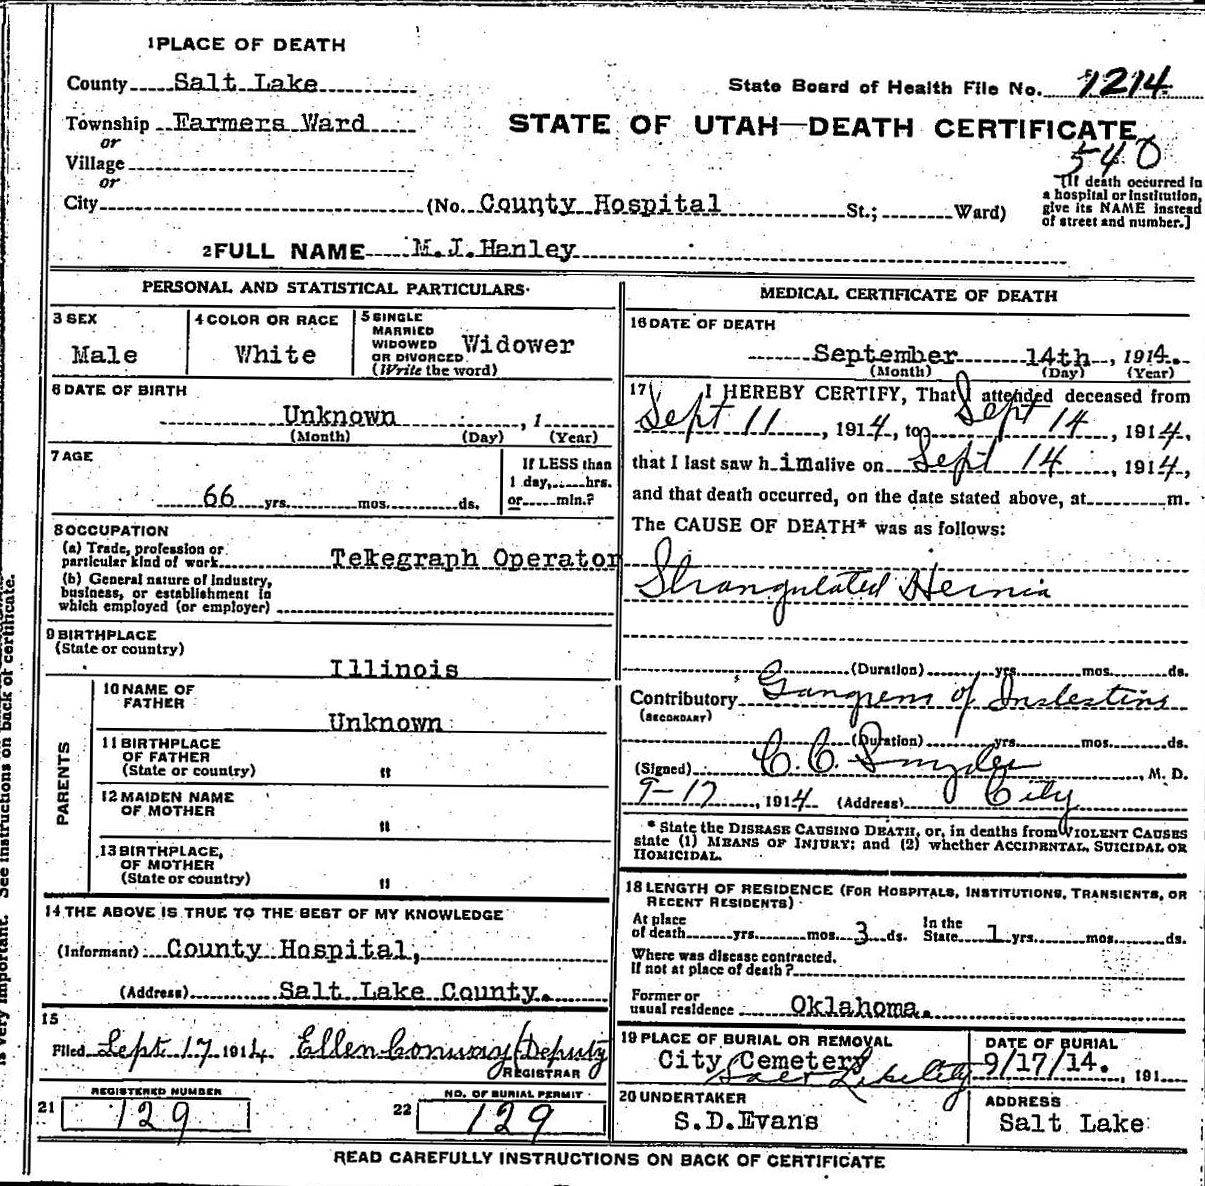 1 PLACE OF DEATH
County Salt Lake
State Board of Health File No. 1214
Township Farmers Ward
STATE OF UTAH—DEATH CERTIFICATE
or
540
Village
or
[If death occurred in
a hospital or institution,
give its NAME instead
of street and number.]
City (No. County Hospital St.; Ward)
2 FULL NAME M.J.Hanley
PERSONAL AND STATISTICAL PARTICULARS
3 SEX
Male
4 COLOR OR RACE
White
5 SINGLE
MARRIED
WIDOWED
OR DIVORCED
(Write the word)
Widower
6 DATE OF BIRTH
Unknown , 1
(Month) (Day) (Year)
7 AGE
66 yrs. mos. ds.
If LESS than
1 day, hrs.
or min.?
8 OCCUPATION
(a) Trade, profession or
particular kind of work Tekegraph Operator
(b) General nature of industry,
business, or establishment in
which employed (or employer)
9 BIRTHPLACE
(State or country)
Illinois
PARENTS
10 NAME OF
FATHER
Unknown
11 BIRTHPLACE
OF FATHER
(State or country) "
12 MAIDEN NAME
OF MOTHER
"
13 BIRTHPLACE,
OF MOTHER
(State or country) "
14 THE ABOVE IS TRUE TO THE BEST OF MY KNOWLEDGE
(Informant) County Hospital,
(Address) Salt Lake County.
15
Filed Sept 17 1914 Ellen Conway/Deputy
REGISTRAR
REGISTERED NUMBER
21 129
NO. OF BURIAL PERMIT
22 129
MEDICAL CERTIFICATE OF DEATH
16 DATE OF DEATH
September 14th , 1914.
(Month) (Day) (Year)
17 I HEREBY CERTIFY, That I attended deceased from
Sept 11 , 1914, to Sept 14 , 1914,
that I last saw h im alive on Sept 14 , 1914,
and that death occurred, on the date stated above, at m.
The CAUSE OF DEATH* was as follows:
Strangulated Hernia
(Duration) yrs. mos. ds.
Contributory Gangrene of Intestine
(SECONDARY)
(Duration) yrs. mos. ds.
(Signed) C. C. Snyder , M. D.
9-17 , 1914 (Address) City
* State the DISEASE CAUSING DEATH, or, in deaths from VIOLENT CAUSES
state (1) MEANS OF INJURY; and (2) whether ACCIDENTAL, SUICIDAL OR
HOMICIDAL.
18 LENGTH OF RESIDENCE (FOR HOSPITALS, INSTITUTIONS, TRANSIENTS, OR
RECENT RESIDENTS)
At place
of death yrs. mos. 3 ds. In the
State 1 yrs. mos. ds.
Where was disease contracted,
If not at place of death?
Former or
usual residence Oklahoma.
19 PLACE OF BURIAL OR REMOVAL
City Cemetery
Salt Lake City
DATE OF BURIAL
9/17/14. , 191
20 UNDERTAKER
S.D.Evans
ADDRESS
Salt Lake
READ CAREFULLY INSTRUCTIONS ON BACK OF CERTIFICATE
is very important. See instructions on back of certificate.